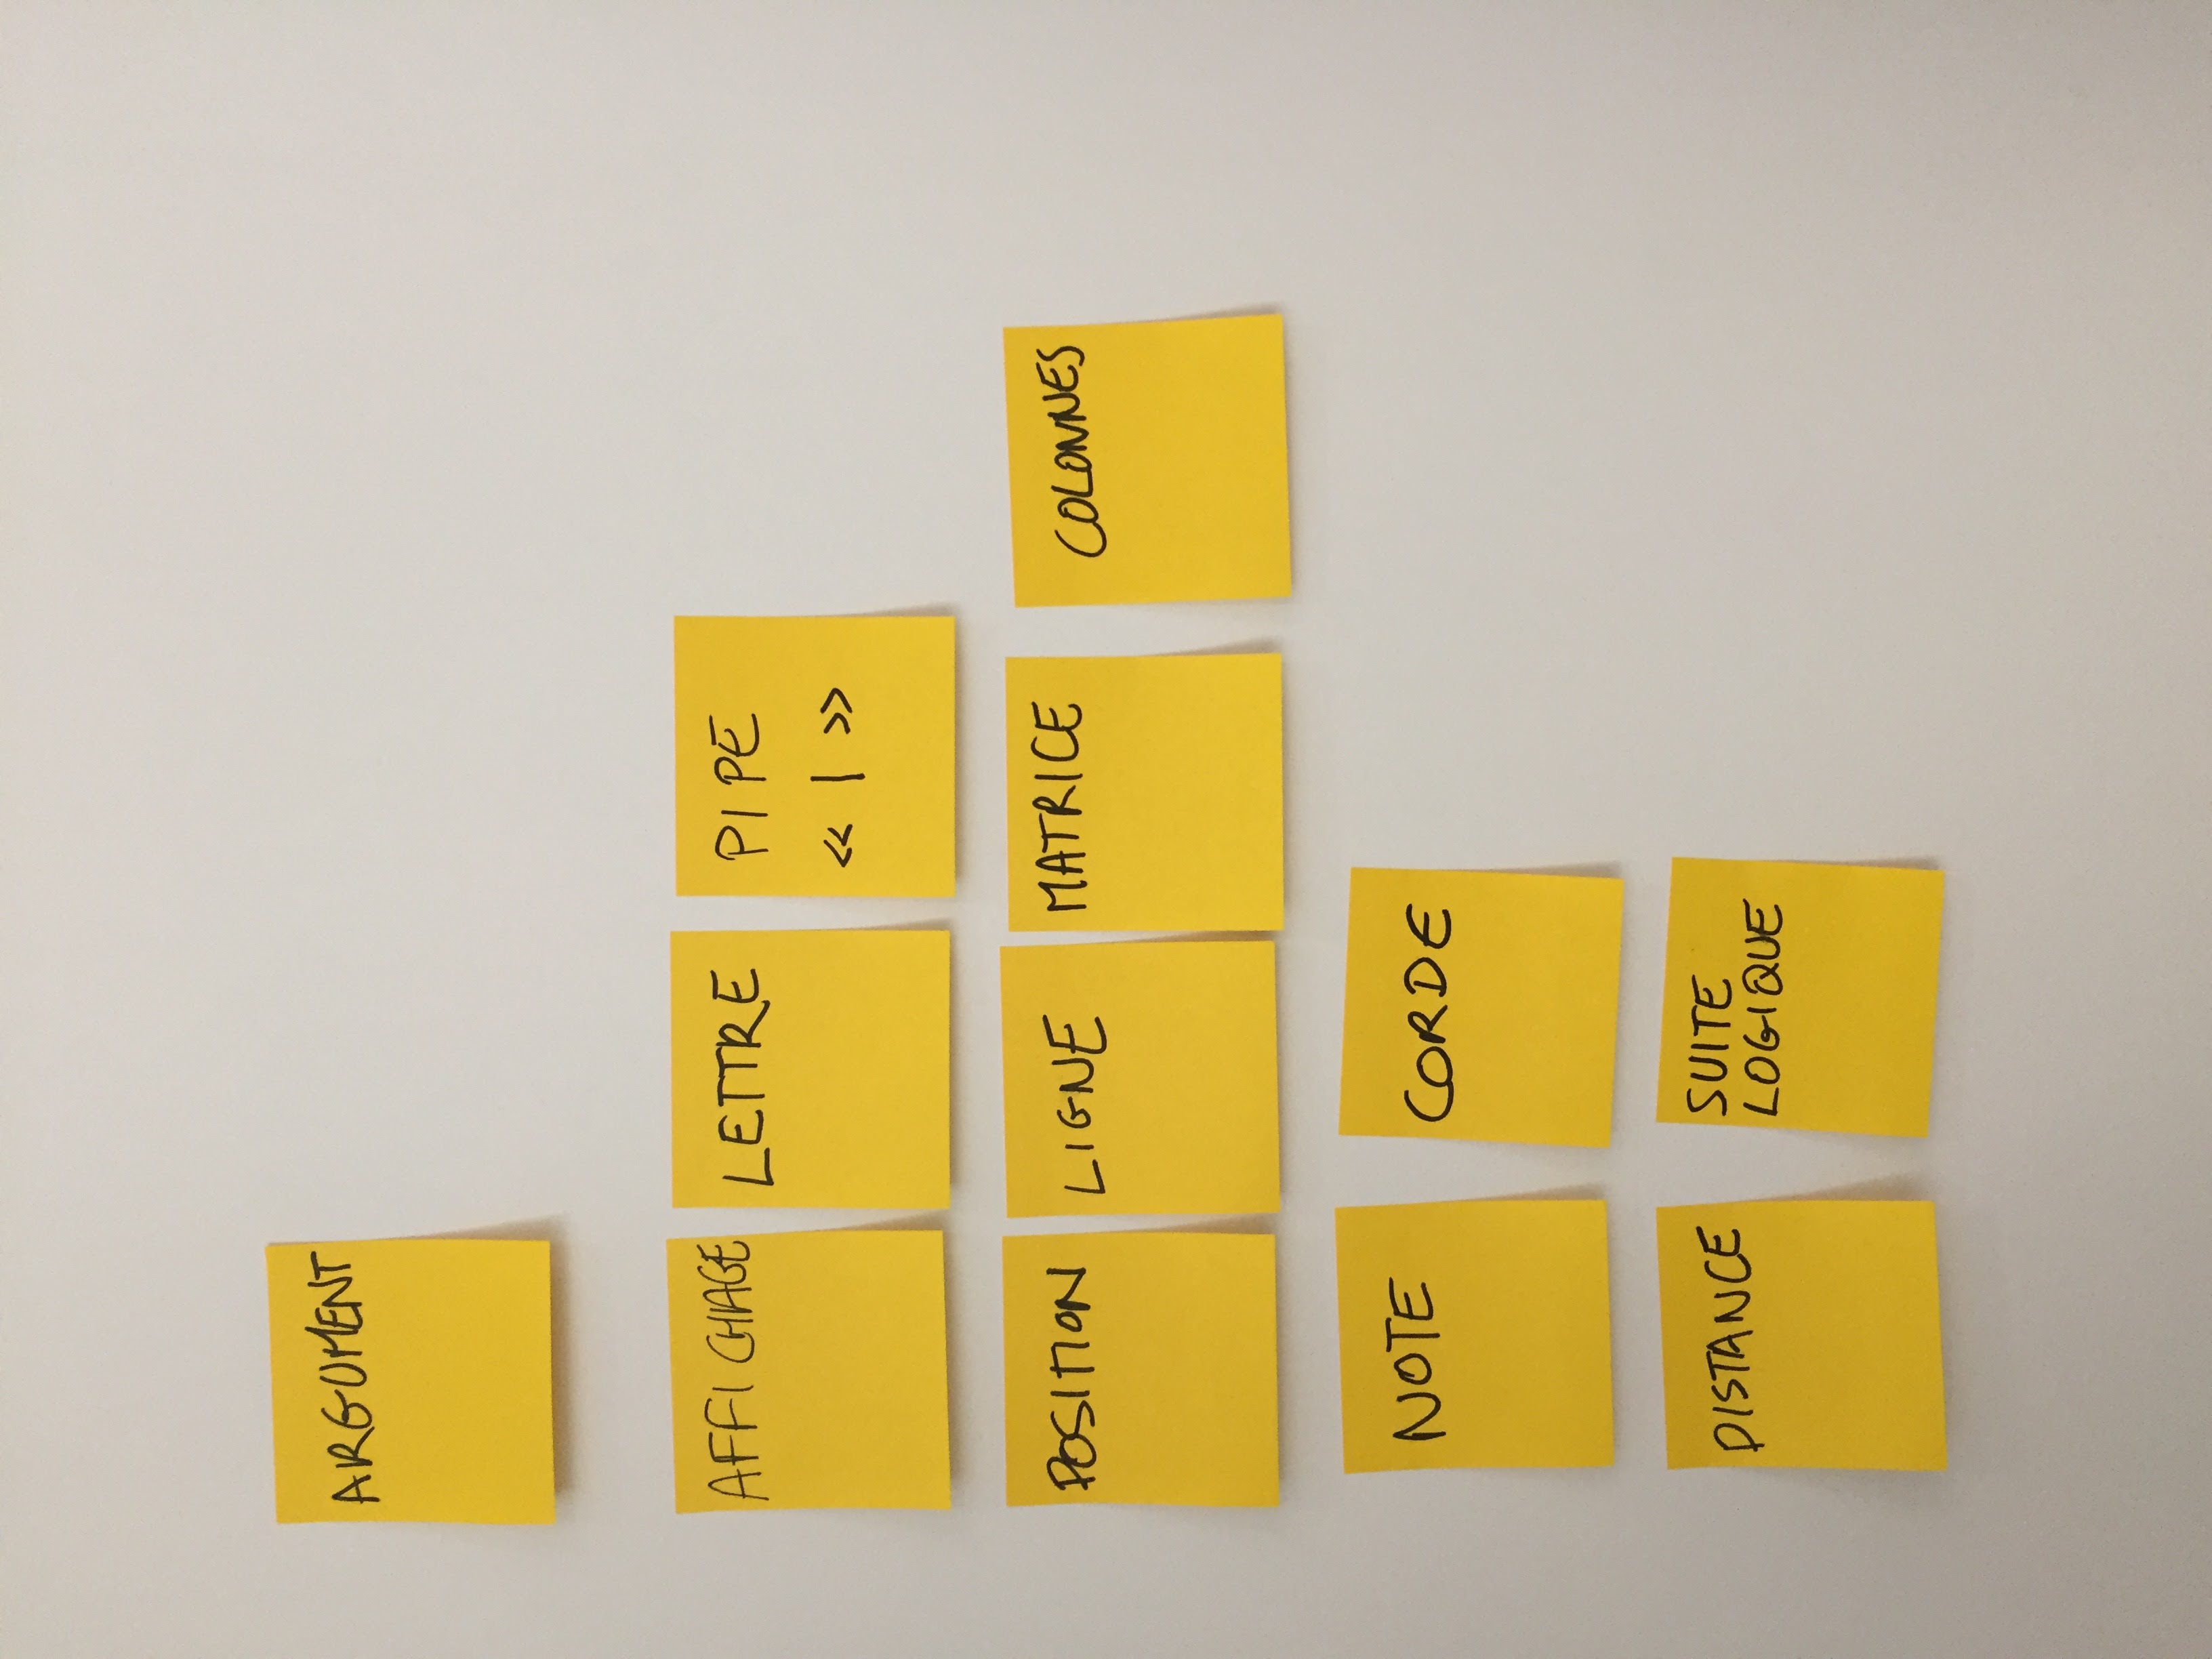 ARGUMENT
AFFICHAGE
LETTRE
PIPE
« | »
POSITION
LIGNE
MATRICE
COLONNES
NOTE
CORDE
DISTANCE
SUITE
LOGIQUE